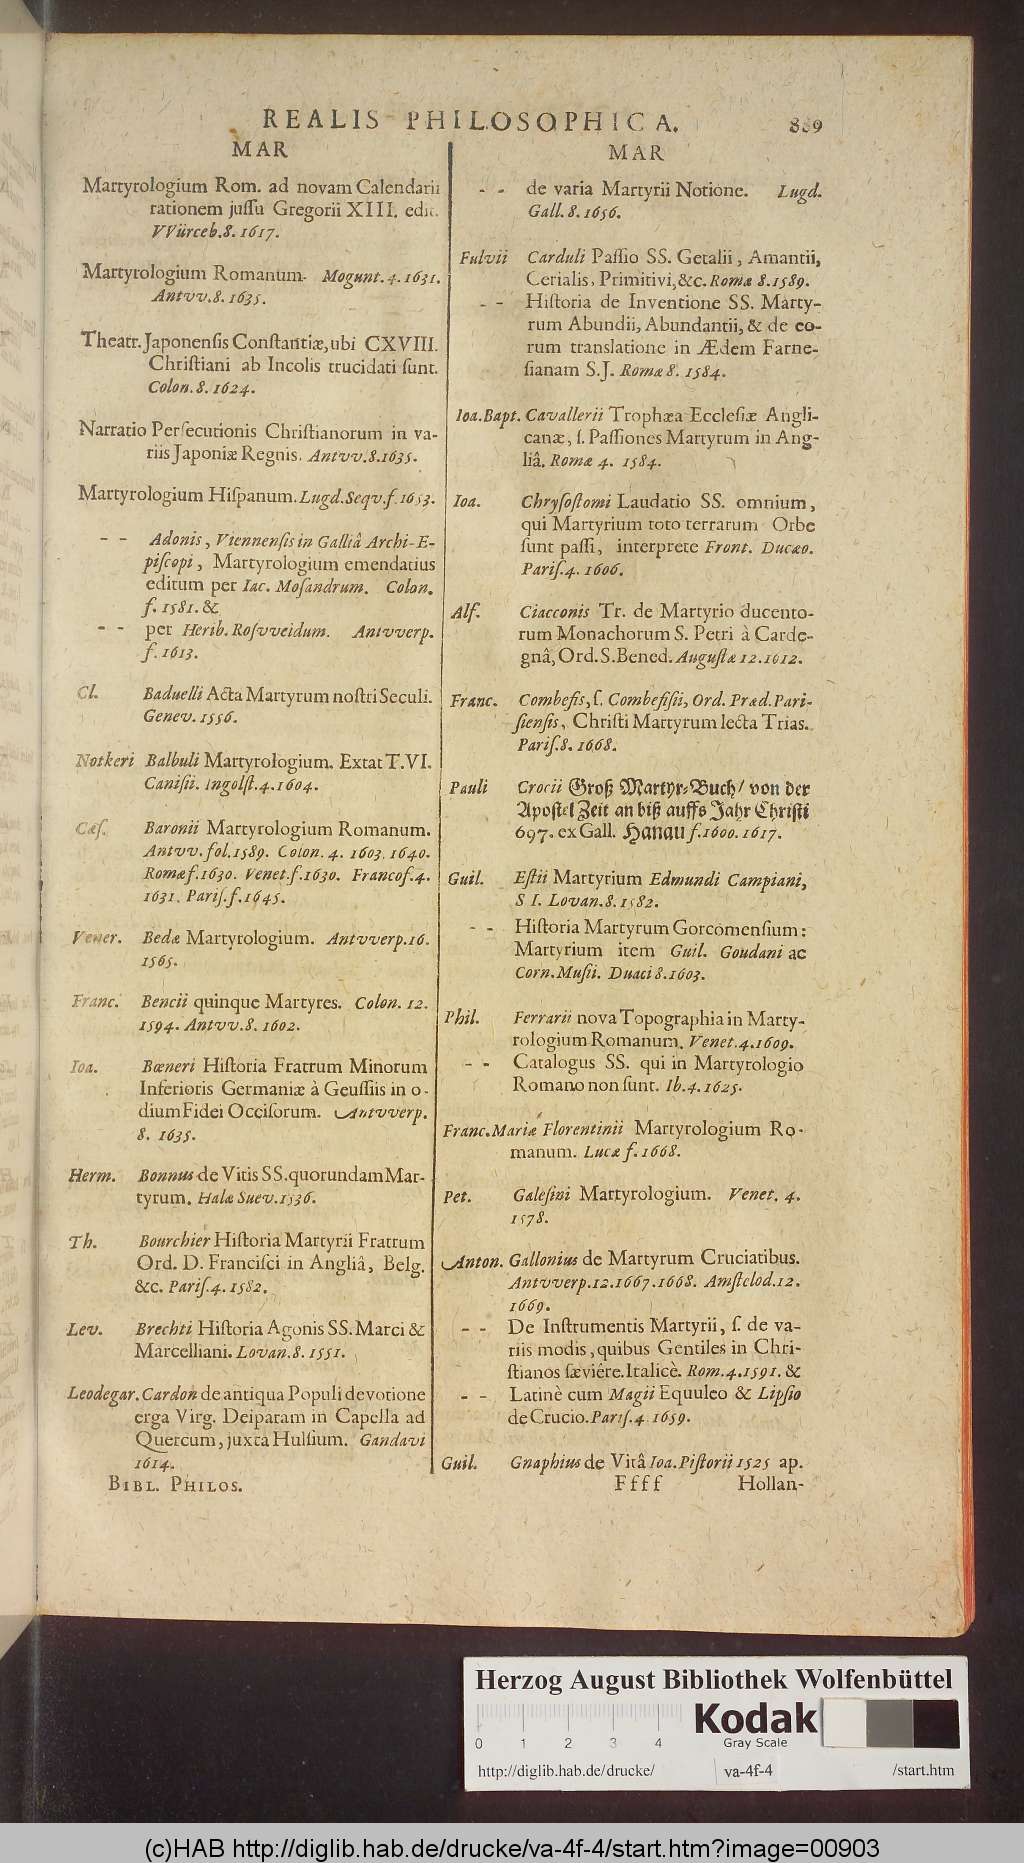 REALIS PHILOSOPHICA. 889
MAR
Martyrologium Rom. ad novam Calendarii
rationem jussu Gregorii XIII. edit.
VVürceb. 8. 1617.
Martyrologium Romanum. Mogunt. 4. 1631.
Antvv. 8. 1635.
Theatr. Japonensis Constantiæ, ubi CXVIII.
Christiani ab Incolis trucidati sunt.
Colon. 8. 1624.
Narratio Persecutionis Christianorum in va-
riis Japoniæ Regnis. Antvv. 8. 1635.
Martyrologium Hispanum. Lugd. Seqv. f. 1653.
- - Adonis, Viennensis in Galliâ Archi-E-
piscopi, Martyrologium emendatius
editum per Iac. Mosandrum. Colon.
f. 1581. &
- - per Herib. Rosvveidum. Antvverp.
f. 1613.
Cl. Baduelli Acta Martyrum nostri Seculi.
Genev. 1556.
Notkeri Balbuli Martyrologium. Extat T. VI.
Canisii. Ingolst. 4. 1604.
Cæs. Baronii Martyrologium Romanum.
Antvv. fol. 1589. Colon. 4. 1603. 1640.
Romæ f. 1630. Venet. f. 1630. Francof. 4.
1631. Paris. f. 1645.
Vener. Bedæ Martyrologium. Antvverp. 16.
1565.
Franc. Bencii quinque Martyres. Colon. 12.
1594. Antvv. 8. 1602.
Ioa. Bœneri Historia Fratrum Minorum
Inferioris Germaniæ à Geussiis in o-
dium Fidei Occisorum. Antvverp.
8. 1635.
Herm. Bonnus de Vitis SS. quorundam Mar-
tyrum. Halæ Suev. 1536.
Th. Bourchier Historia Martyrii Fratrum
Ord. D. Francisci in Angliâ, Belg.
&c. Paris. 4. 1582.
Lev. Brechti Historia Agonis SS. Marci &
Marcelliani. Lovan. 8. 1551.
Leodegar. Cardon de antiqua Populi devotione
erga Virg. Deiparam in Capella ad
Quercum, juxta Hulsium. Gandavi
1614.
BIBL. PHILOS.
MAR
- - de varia Martyrii Notione. Lugd.
Gall. 8. 1656.
Fulvii Carduli Passio SS. Getalii, Amantii,
Cerialis, Primitivi, &c. Romæ 8. 1589.
- - Historia de Inventione SS. Marty-
rum Abundii, Abundantii, & de eo-
rum translatione in Ædem Farne-
sianam S. J. Romæ 8. 1584.
Ioa. Bapt. Cavallerii Trophæa Ecclesiæ Angli-
canæ, s. Passiones Martyrum in Ang-
liâ. Romæ 4. 1584.
Ioa. Chrysostomi Laudatio SS. omnium,
qui Martyrium toto terrarum Orbe
sunt passi, interprete Front. Ducæo.
Paris. 4. 1606.
Alf. Ciacconis Tr. de Martyrio ducento-
rum Monachorum S. Petri à Carde-
gnâ, Ord. S. Bened. Augustæ 12. 1612.
Franc. Combefis, s. Combefisii, Ord. Præd. Pari-
siensis, Christi Martyrum lecta Trias.
Paris. 8. 1668.
Pauli Crocii Groß Martyr-Buch / von der
Apostel Zeit an biß auffs Jahr Christi
697. ex Gall. Hanau f. 1600. 1617.
Guil. Estii Martyrium Edmundi Campiani,
S I. Lovan. 8. 1582.
- - Historia Martyrum Gorcomensium:
Martyrium item Guil. Goudani ac
Corn. Musii. Duaci 8. 1603.
Phil. Ferrarii nova Topographia in Marty-
rologium Romanum. Venet. 4. 1609.
- - Catalogus SS. qui in Martyrologio
Romano non sunt. Ib. 4. 1625.
Franc. Mariæ Florentinii Martyrologium Ro-
manum. Lucæ f. 1668.
Pet. Galesini Martyrologium. Venet. 4.
1578.
Anton. Gallonius de Martyrum Cruciatibus.
Antvverp. 12. 1667. 1668. Amstelod. 12.
1669.
- - De Instrumentis Martyrii, s. de va-
riis modis, quibus Gentiles in Chri-
stianos sævière. Italicè. Rom. 4. 1591. &
- - Latinè cum Magii Equuleo & Lipsio
de Crucio. Paris. 4. 1659.
Guil. Gnaphius de Vitâ Ioa. Pistorii 1525 ap.
Ffff Hollan-
Herzog August Bibliothek Wolfenbüttel
Kodak
Gray Scale
0 1 2 3 4
http://diglib.hab.de/drucke/ va-4f-4 /start.htm
(c)HAB http://diglib.hab.de/drucke/va-4f-4/start.htm?image=00903